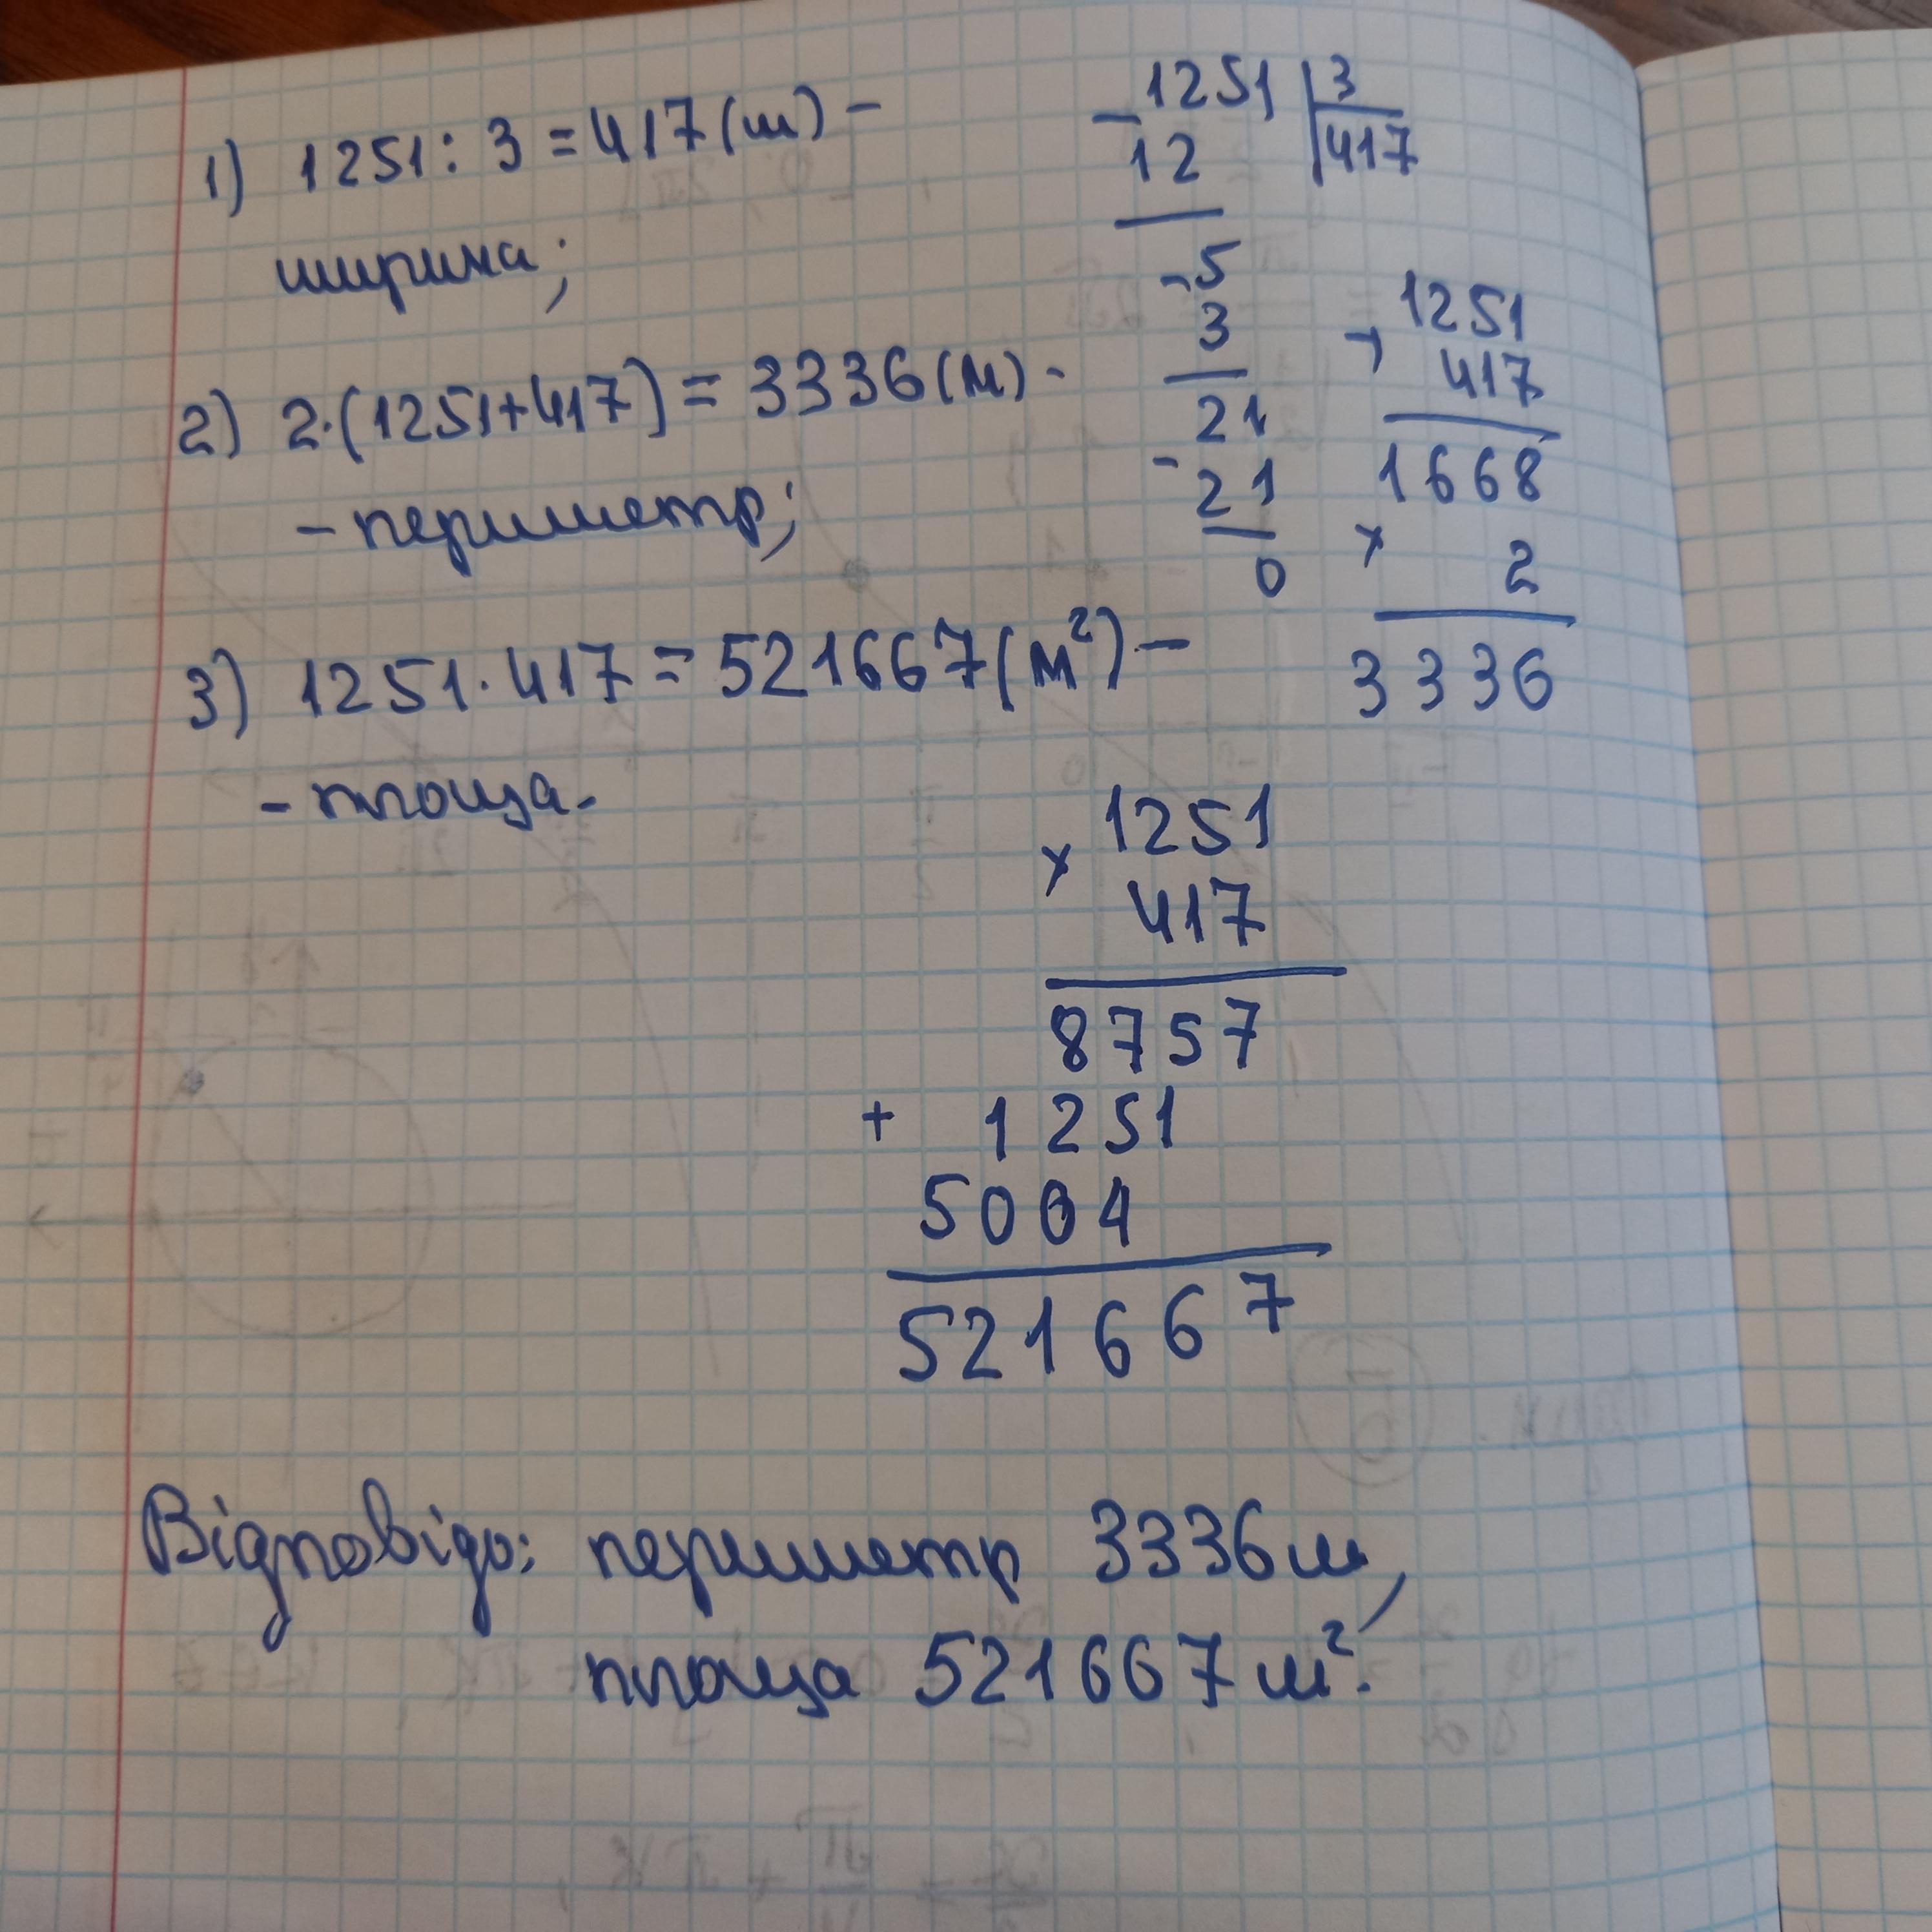 1) 1251 : 3 = 417 (м) -
ширина;
2) 2·(1251+417) = 3336 (м) -
- периметр;
3) 1251 · 417 = 521667 (м²) -
- площа.
- 1251 | 3
12 | 417
- 5
3
21
- 21
0
+ 1251
417
1668
x 2
3336
x 1251
417
8757
+ 1251
5004
521667
Відповідь: периметр 3336 м,
площа 521667 м².